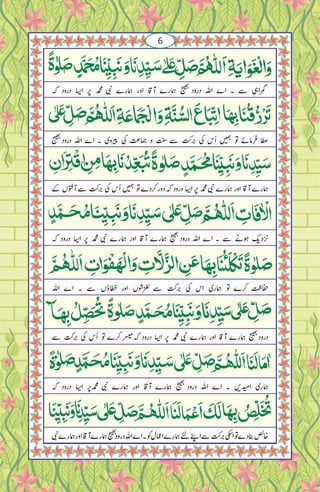 6
وَالْغَوَايَةِ اَللّٰهُمَّ صَلِّ عَلٰى سَيِّدِنَا وَنَبِيِّنَا مُحَمَّدٍ صَلٰوةً
گمراہی سے ۔ اے اللہ درود بھیج ہمارے آقا اور ہمارے نبی محمد پر ایسا درود کہ
تَرْزُقُنَا بِهَا اتِّبَاعَ السُّنَّةِ وَالْجَمَاعَةِ اَللّٰهُمَّ صَلِّ عَلٰى
عطا فرمائے تو ہمیں اُس کی برکت سے سنت و جماعت کی پیروی ۔ اے اللہ درود بھیج
سَيِّدِنَا وَنَبِيِّنَا مُحَمَّدٍ صَلٰوةً تُبْعِدُنَا بِهَا مِنِ اقْتِرَانِ
ہمارے آقا اور ہمارے نبی محمد پر ایسا درود کہ دور کردے تو ہمیں اُس کی برکت سے آفتوں کے
الْاٰفَاتِ اَللّٰهُمَّ صَلِّ عَلٰى سَيِّدِنَا وَنَبِيِّنَا مُحَمَّدٍ
نزدیک ہونے سے ۔ اے اللہ درود بھیج ہمارے آقا اور ہمارے نبی محمد پر ایسا درود کہ
صَلٰوةً تَكْلَؤُنَا بِهَا عَنِ الزَّلَّاتِ وَالْهَفَوَاتِ اَللّٰهُمَّ
حفاظت کرے تو ہماری اس کی برکت سے لغزشوں اور خطاؤں سے ۔ اے اللہ
صَلِّ عَلٰى سَيِّدِنَا وَنَبِيِّنَا مُحَمَّدٍ صَلٰوةً تُحَصِّلُ بِهَاۤ
درود بھیج ہمارے آقا اور ہمارے نبی محمد پر ایسا درود کہ میسر کرے تو اُس کی برکت سے
اٰمَالَنَا اَللّٰهُمَّ صَلِّ عَلٰى سَيِّدِنَا وَنَبِيِّنَا مُحَمَّدٍ صَلٰوةً
ہماری امیدیں ۔ اے اللہ درود بھیج ہمارے آقا اور ہمارے نبی محمد پر ایسا درود کہ
تُخَلِّصُ بِهَا لَكَ اَعْمَالَنَا اَللّٰهُمَّ صَلِّ عَلٰى سَيِّدِنَا وَنَبِيِّنَا
خالص بنادے تو اسکی برکت سے اپنے لئے ہمارے اعمال کو ۔ اے اللہ درود بھیج ہمارے آقا اور ہمارے نبی